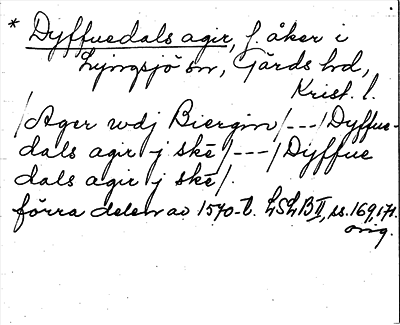 * Dyffuedals agir, f. åker i
Lyngsjö sn, Gärds hd,
Krist. l.
/Ager wdj Biergin/---/Dyffue-
dals agir j skē/---/Dyffue
dals agir j skē/.
förra delen av 1570-t. LSLB II, ss. 169, 171.
orig.